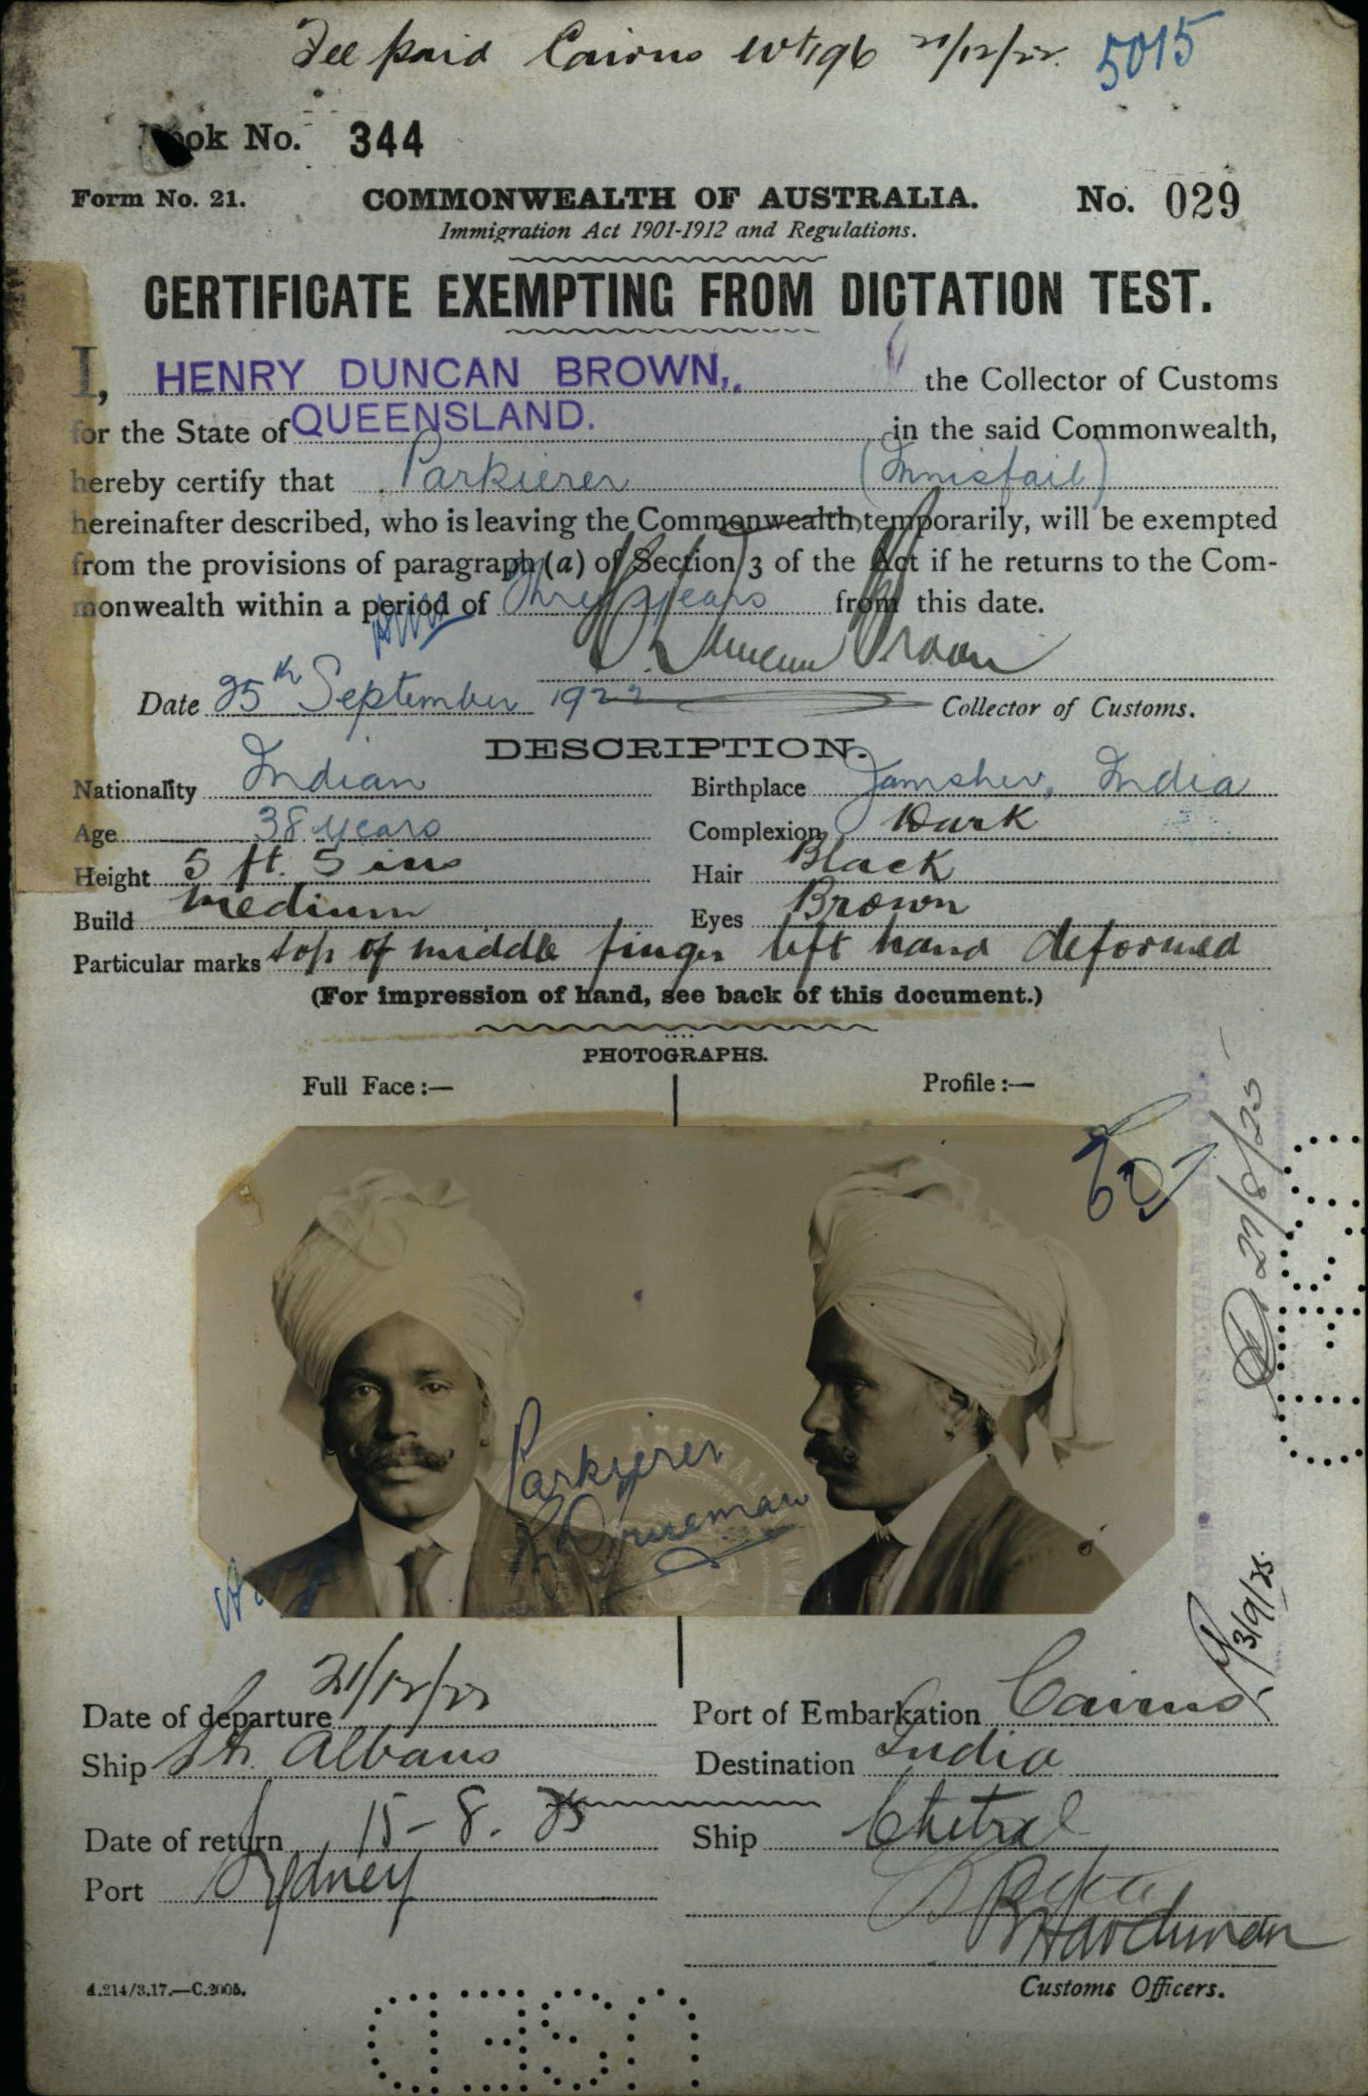 Fee paid Cairns 21/12/22. 5015
Book No. 344
Form No. 21. COMMONWEALTH OF AUSTRALIA. No. 029
Immigration Act 1901-1912 and Regulations.
CERTIFICATE EXEMPTING FROM DICTATION TEST.
I, HENRY DUNCAN BROWN, the Collector of Customs
for the State of QUEENSLAND. in the said Commonwealth,
hereby certify that Parkierer (Innisfail)
hereinafter described, who is leaving the Commonwealth temporarily, will be exempted
from the provisions of paragraph (a) of Section 3 of the Act if he returns to the Com-
monwealth within a period of Three years from this date.
H. Duncan Brown
Date 25th September 1922 Collector of Customs.
DESCRIPTION.
Nationality Indian Birthplace Jamsher, India
Age 38 years Complexion Dark
Height 5 ft. 5 ins Hair Black
Build Medium Eyes Brown
Particular marks top of middle finger left hand deformed
(For impression of hand, see back of this document.)
PHOTOGRAPHS.
Full Face:— Profile:—
27/8/25
Parkierer
3/9/25
Date of departure 21/12/22 Port of Embarkation Cairns
Ship St. Albans Destination India
Date of return 15-8. 25 Ship Chitral
Port Sydney
Hardman
4.214/3.17.—C.2005. Customs Officers.
USED